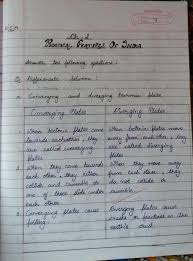 Ch-2
Physical Features Of India
Answer the following questions:
Q Differentiate between:
Converging and diverging tectonic plate
Converging Plates
Diverging Plates
1. When tectonic plates come
towards eachother, they
are called converging
plates
When tectonic plates move
away from each other, they
are called diverging
plates
2. When they come towards
each other, they either
collide and crumble or
one of them slide under
When they move away
from each other, they
do not collide or
crumble.
3. Converging plates cause
folding.
Diverging plates cause
cracks or fractures on the
earth's crust